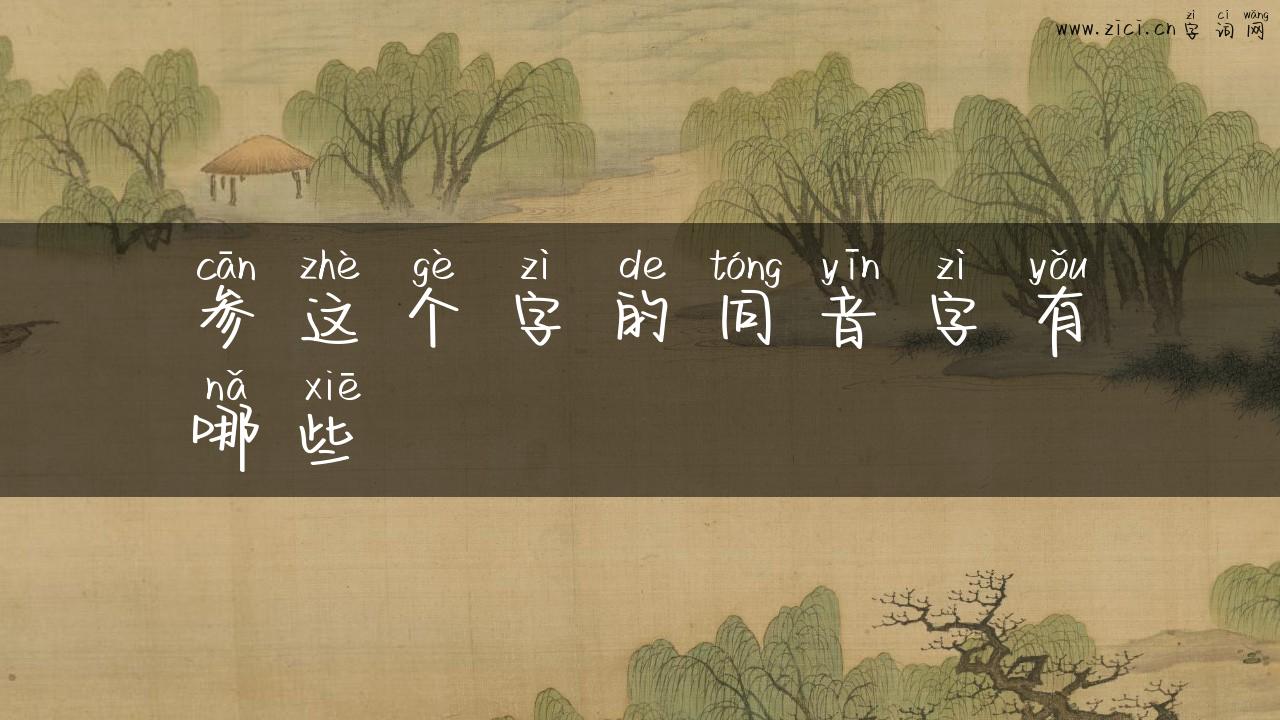 zì cí wǎng
www.zici.cn 字词网
cān zhè gè zì de tóng yīn zì yǒu
参这个字的同音字有
nǎ xiē
哪些